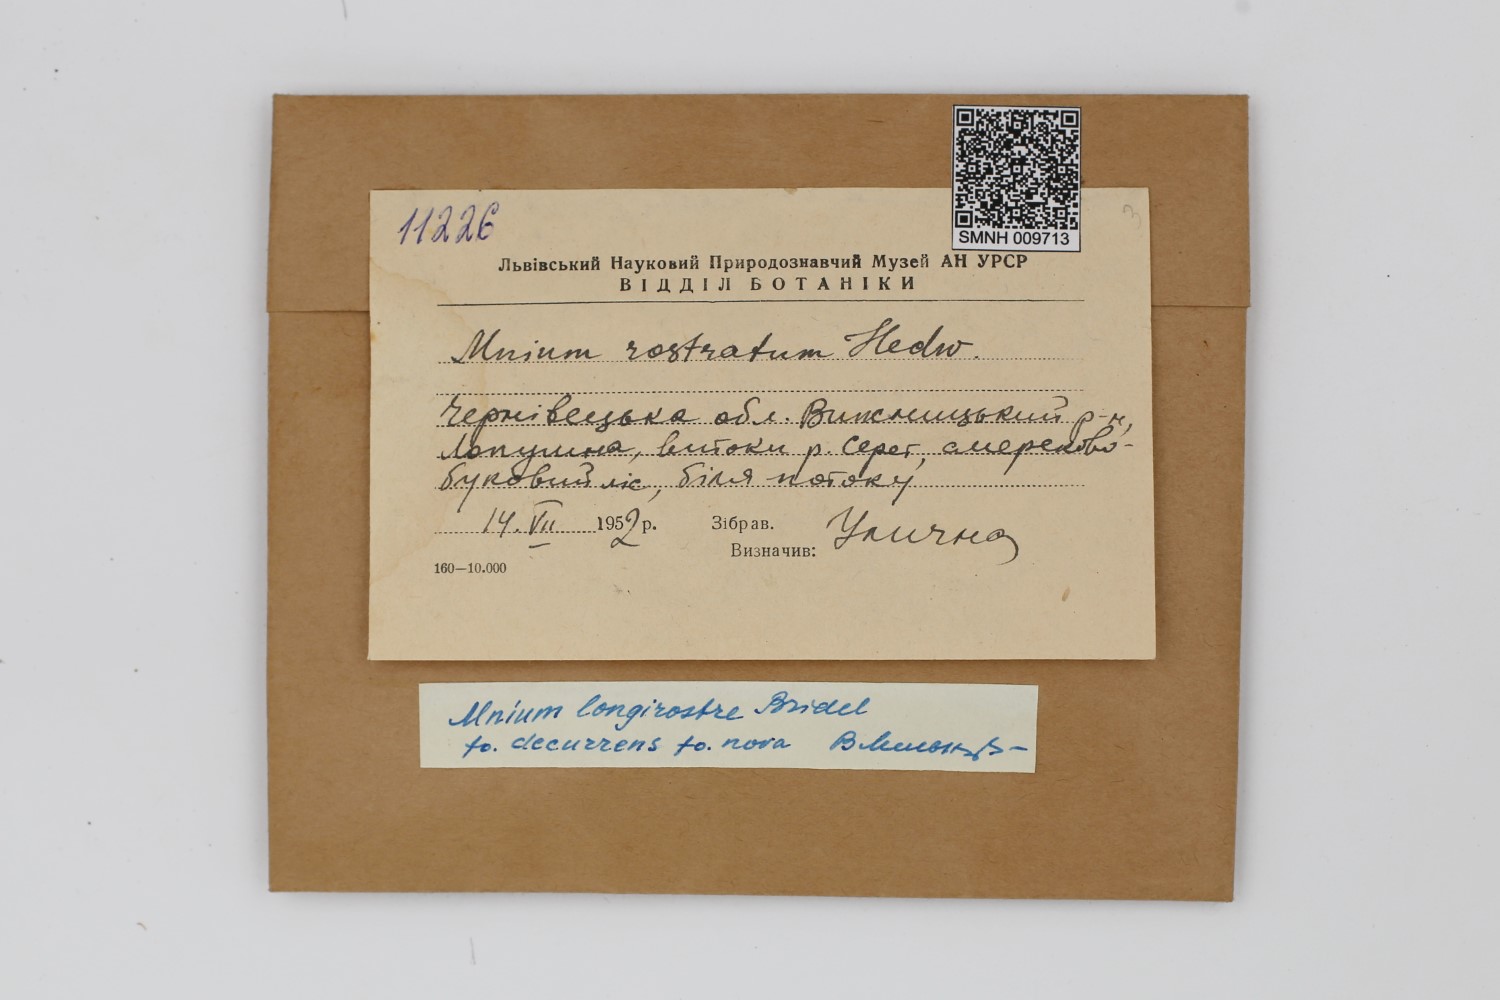 SMNH 009713
11226
3
Львівський Науковий Природознавчий Музей АН УРСР
ВІДДІЛ БОТАНІКИ
Mnium rostratum Hedw.
Чернівецька обл. Вижницький р-н,
Лопушна, витоки р. Серет, смереково-
буковий ліс, біля потоку
14. VII 1952 р. Зібрав.
Визначив: Улична
160—10.000
Mnium longirostre Bridel
fo. decurrens fo. nova